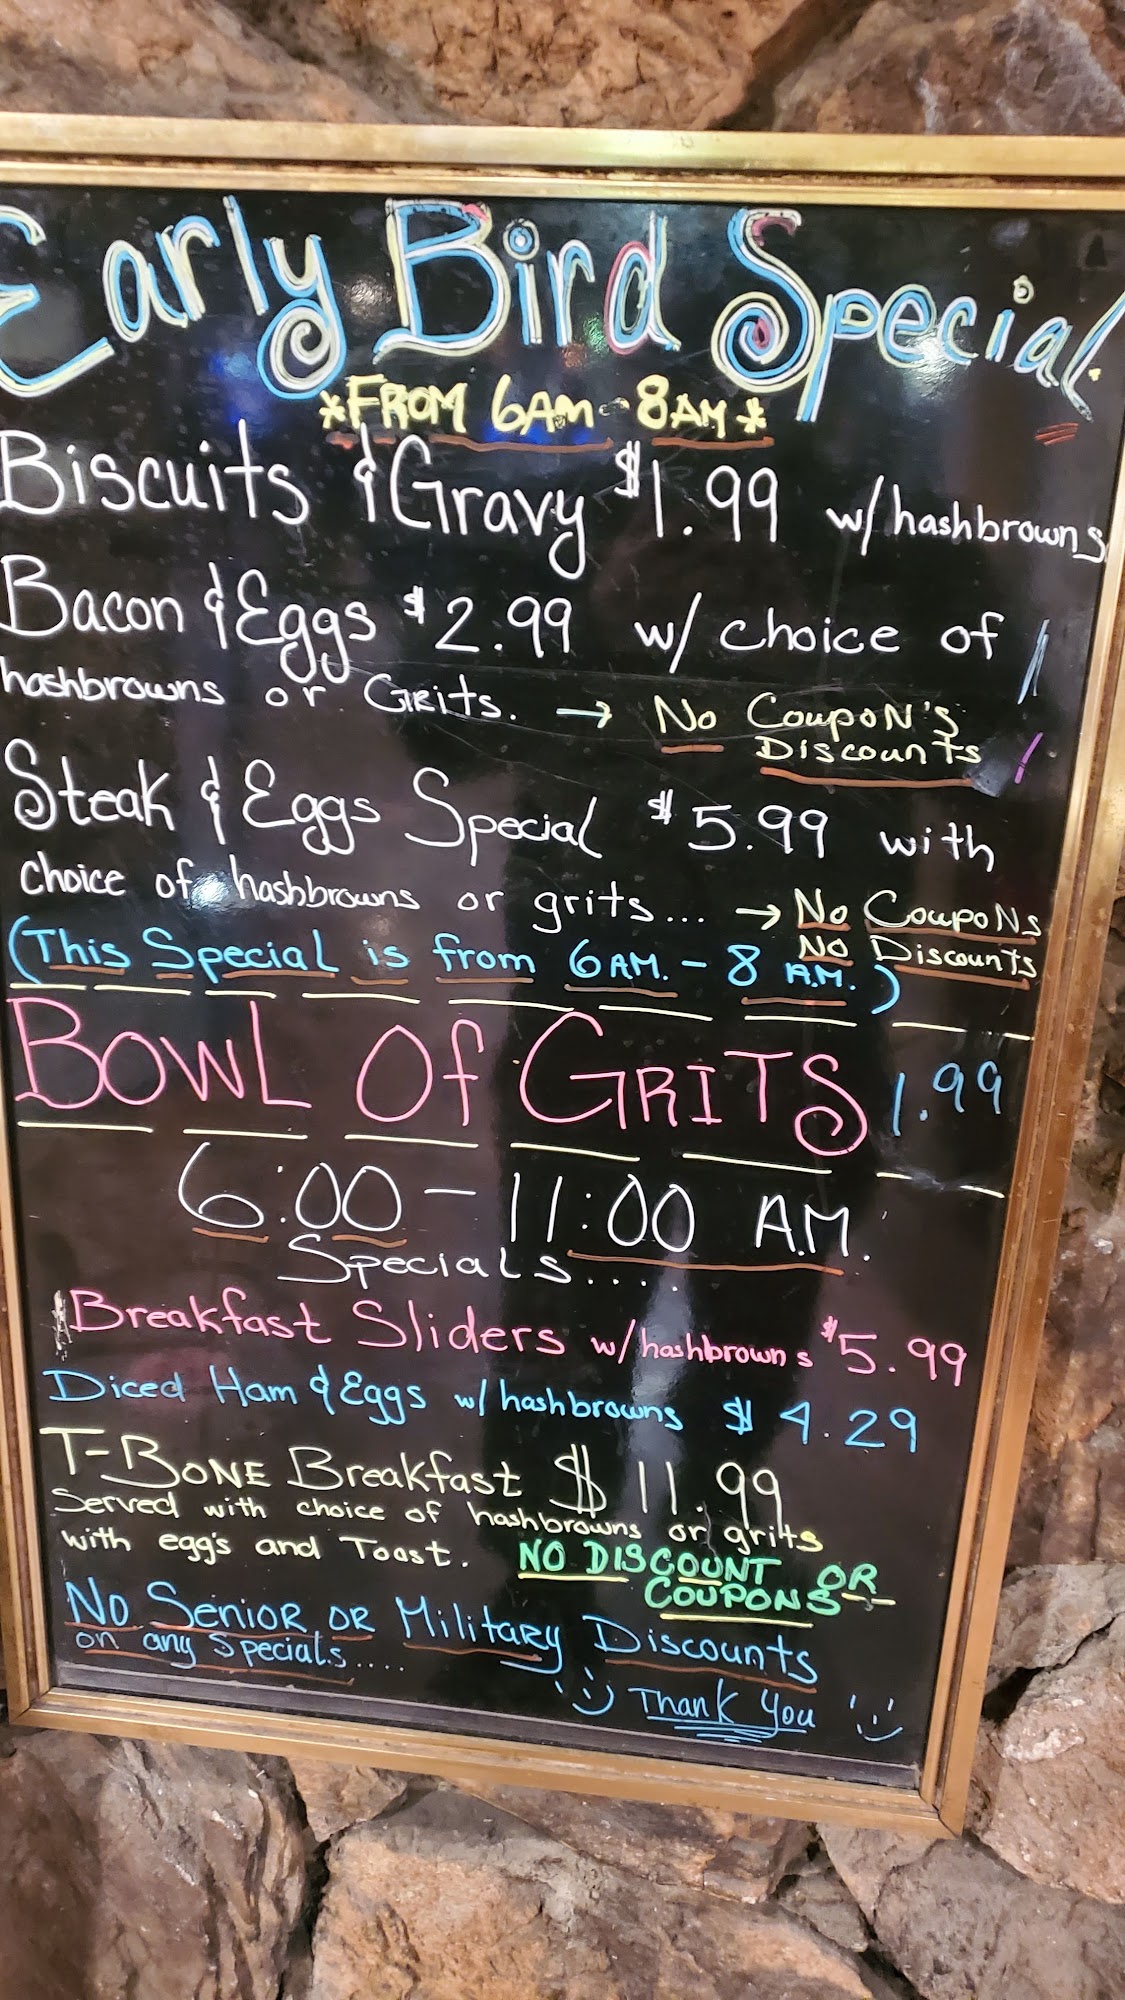 Early Bird Special.
*FROM 6AM - 8AM*
Biscuits & Gravy $1.99 w/hashbrowns
Bacon & Eggs $2.99 w/ choice of
hashbrowns or Grits. → No Coupon's
Discounts
Steak & Eggs Special $5.99 with
choice of hashbrowns or grits... → No Coupons
No Discounts
(This Special is from 6AM. - 8 A.M.)
BOWL Of GRITS 1.99
6:00 - 11:00 A.M.
Specials....
Breakfast Sliders w/hashbrowns $5.99
Diced Ham & Eggs w/hashbrowns $4.29
T-BONE Breakfast $11.99
Served with choice of hashbrowns or grits
with egg's and Toast. NO DISCOUNT OR
COUPONS
No Senior or Military Discounts
on any specials....
Thank You